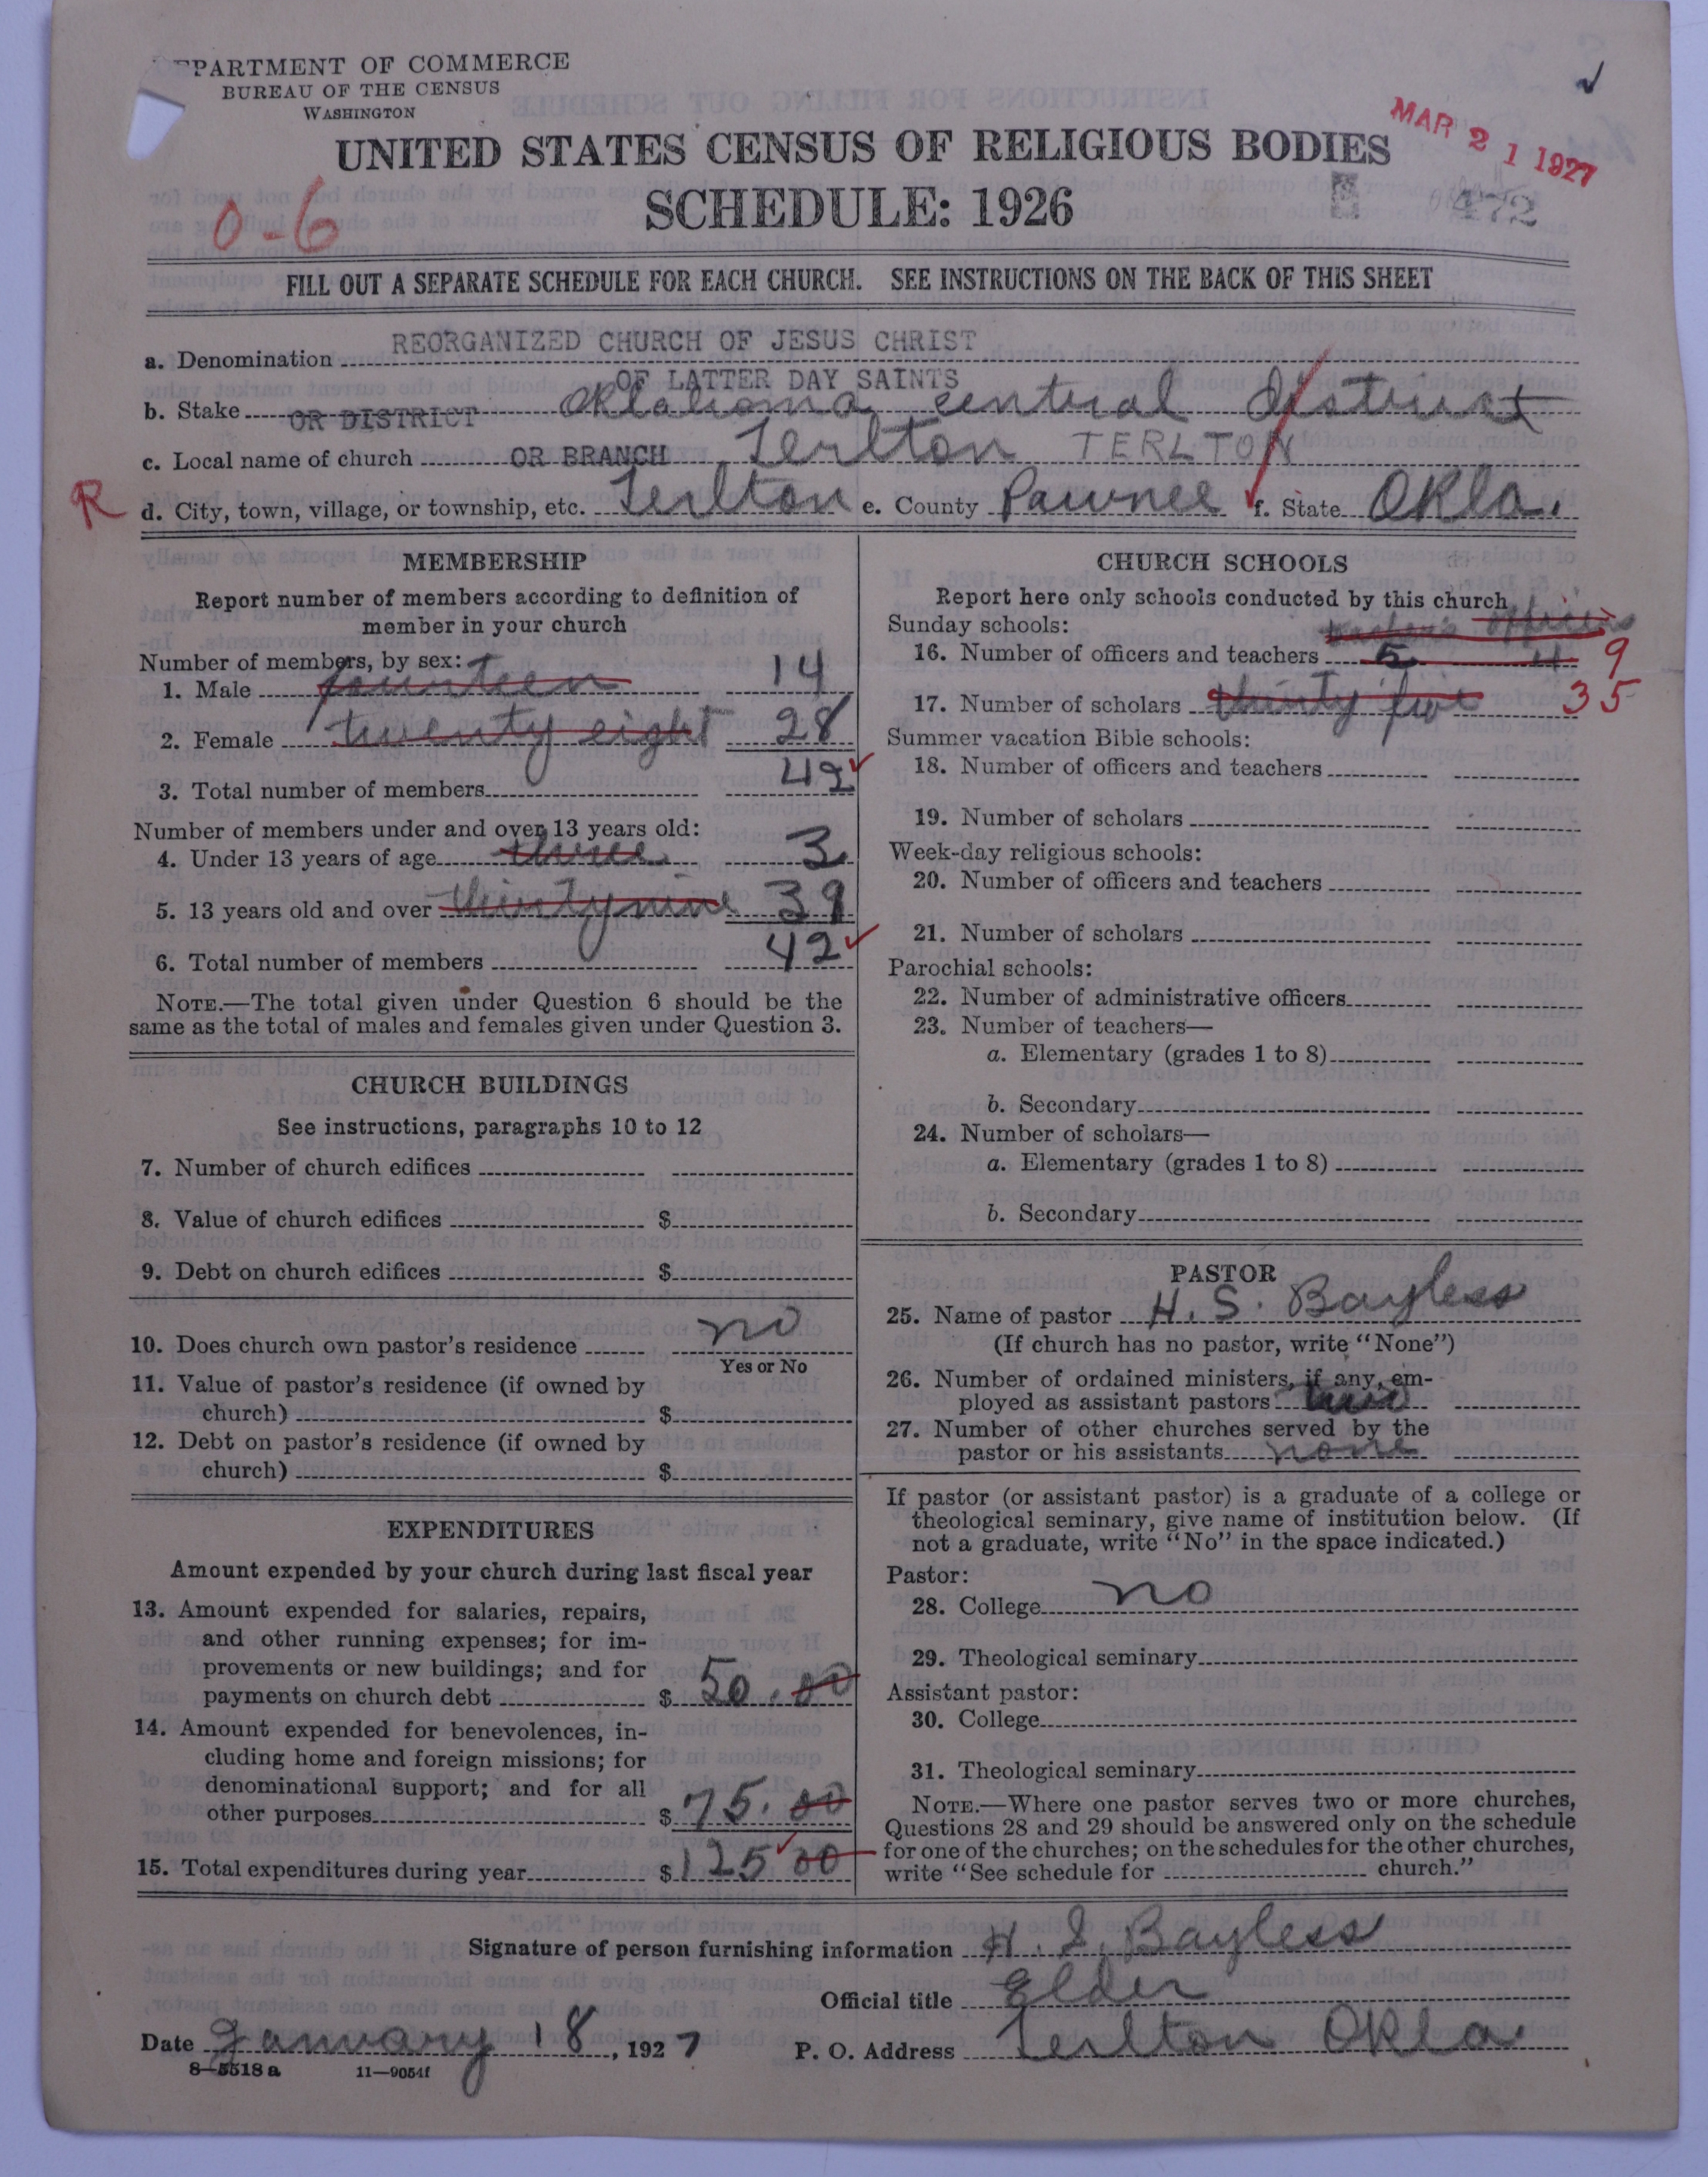 DEPARTMENT OF COMMERCE
BUREAU OF THE CENSUS
WASHINGTON
UNITED STATES CENSUS OF RELIGIOUS BODIES
MAR 21 1927
SCHEDULE: 1926
472
O-6
FILL OUT A SEPARATE SCHEDULE FOR EACH CHURCH. SEE INSTRUCTIONS ON THE BACK OF THIS SHEET
a. Denomination REORGANIZED CHURCH OF JESUS CHRIST
OF LATTER DAY SAINTS
b. Stake OR DISTRICT Oklahoma central District
c. Local name of church OR BRANCH Terlton TERLTON
R d. City, town, village, or township, etc. Terlton e. County Pawnee f. State Okla.
MEMBERSHIP
Report number of members according to definition of
member in your church
Number of members, by sex:
1. Male fourteen 14
2. Female twenty eight 28
3. Total number of members 42
Number of members under and over 13 years old:
4. Under 13 years of age three 3
5. 13 years old and over thirty nine 39
6. Total number of members 42
NOTE.—The total given under Question 6 should be the
same as the total of males and females given under Question 3.
CHURCH BUILDINGS
See instructions, paragraphs 10 to 12
7. Number of church edifices
8. Value of church edifices $
9. Debt on church edifices $
10. Does church own pastor's residence no
Yes or No
11. Value of pastor's residence (if owned by
church) $
12. Debt on pastor's residence (if owned by
church) $
EXPENDITURES
Amount expended by your church during last fiscal year
13. Amount expended for salaries, repairs,
and other running expenses; for im-
provements or new buildings; and for
payments on church debt $ 50.00
14. Amount expended for benevolences, in-
cluding home and foreign missions; for
denominational support; and for all
other purposes $ 75.00
15. Total expenditures during year $ 125 00
CHURCH SCHOOLS
Report here only schools conducted by this church
Sunday schools: officers
16. Number of officers and teachers 5 4 9
17. Number of scholars thirty five 35
Summer vacation Bible schools:
18. Number of officers and teachers
19. Number of scholars
Week-day religious schools:
20. Number of officers and teachers
21. Number of scholars
Parochial schools:
22. Number of administrative officers
23. Number of teachers—
a. Elementary (grades 1 to 8)
b. Secondary
24. Number of scholars—
a. Elementary (grades 1 to 8)
b. Secondary
PASTOR
25. Name of pastor H. S. Bayless
(If church has no pastor, write "None")
26. Number of ordained ministers, if any, em-
ployed as assistant pastors
27. Number of other churches served by the
pastor or his assistants none
If pastor (or assistant pastor) is a graduate of a college or
theological seminary, give name of institution below. (If
not a graduate, write "No" in the space indicated.)
Pastor:
28. College no
29. Theological seminary
Assistant pastor:
30. College
31. Theological seminary
NOTE.—Where one pastor serves two or more churches,
Questions 28 and 29 should be answered only on the schedule
for one of the churches; on the schedules for the other churches,
write "See schedule for church."
Signature of person furnishing information H. S. Bayless
Official title Elder
Date January 18, 1927 P. O. Address Terlton Okla.
8—5518a 11—9054f